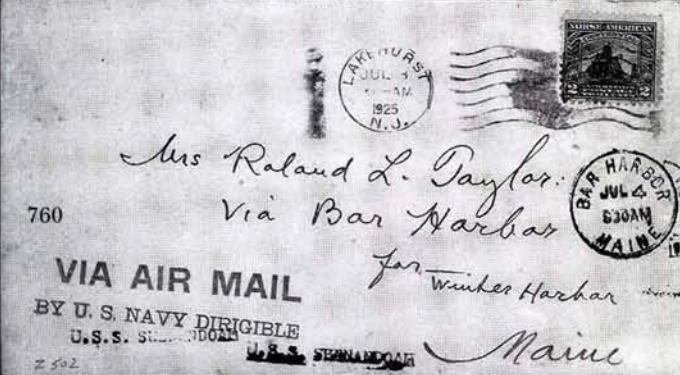 NORSE-AMERICAN
2 2
LAKEHURST
JUL 3
AM
1925
N.J.
Mrs Roland L. Taylor.
Via Bar Harbor
for Winter Harbor
Maine
BAR HARBOR
JUL 4
630AM
MAINE
760
VIA AIR MAIL
BY U. S. NAVY DIRIGIBLE
U.S.S.
U.S.S. SHENANDOAH
Z 502